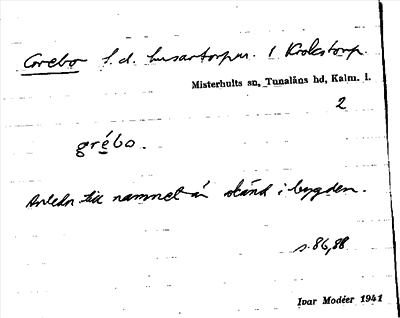 Grebo f.d. husartorpen. 1 Krokstorp.
Misterhults sn, Tunaläns hd, Kalm. l.
2
grébo.
Anledn till namnet är okänd i bygden.
s. 86, 88
Ivar Modéer 1941